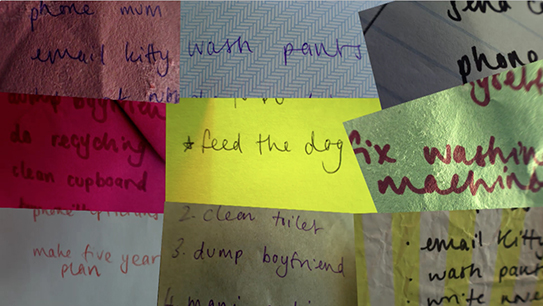 phone mum
email kitty
wash pants
phone
dump boyfriend
do recycling
clean cupboard
*feed the dog
fix washing
machine
make five year
plan
2. clean toilet
3. dump boyfriend
4.
· email kitty
· wash pants
· write